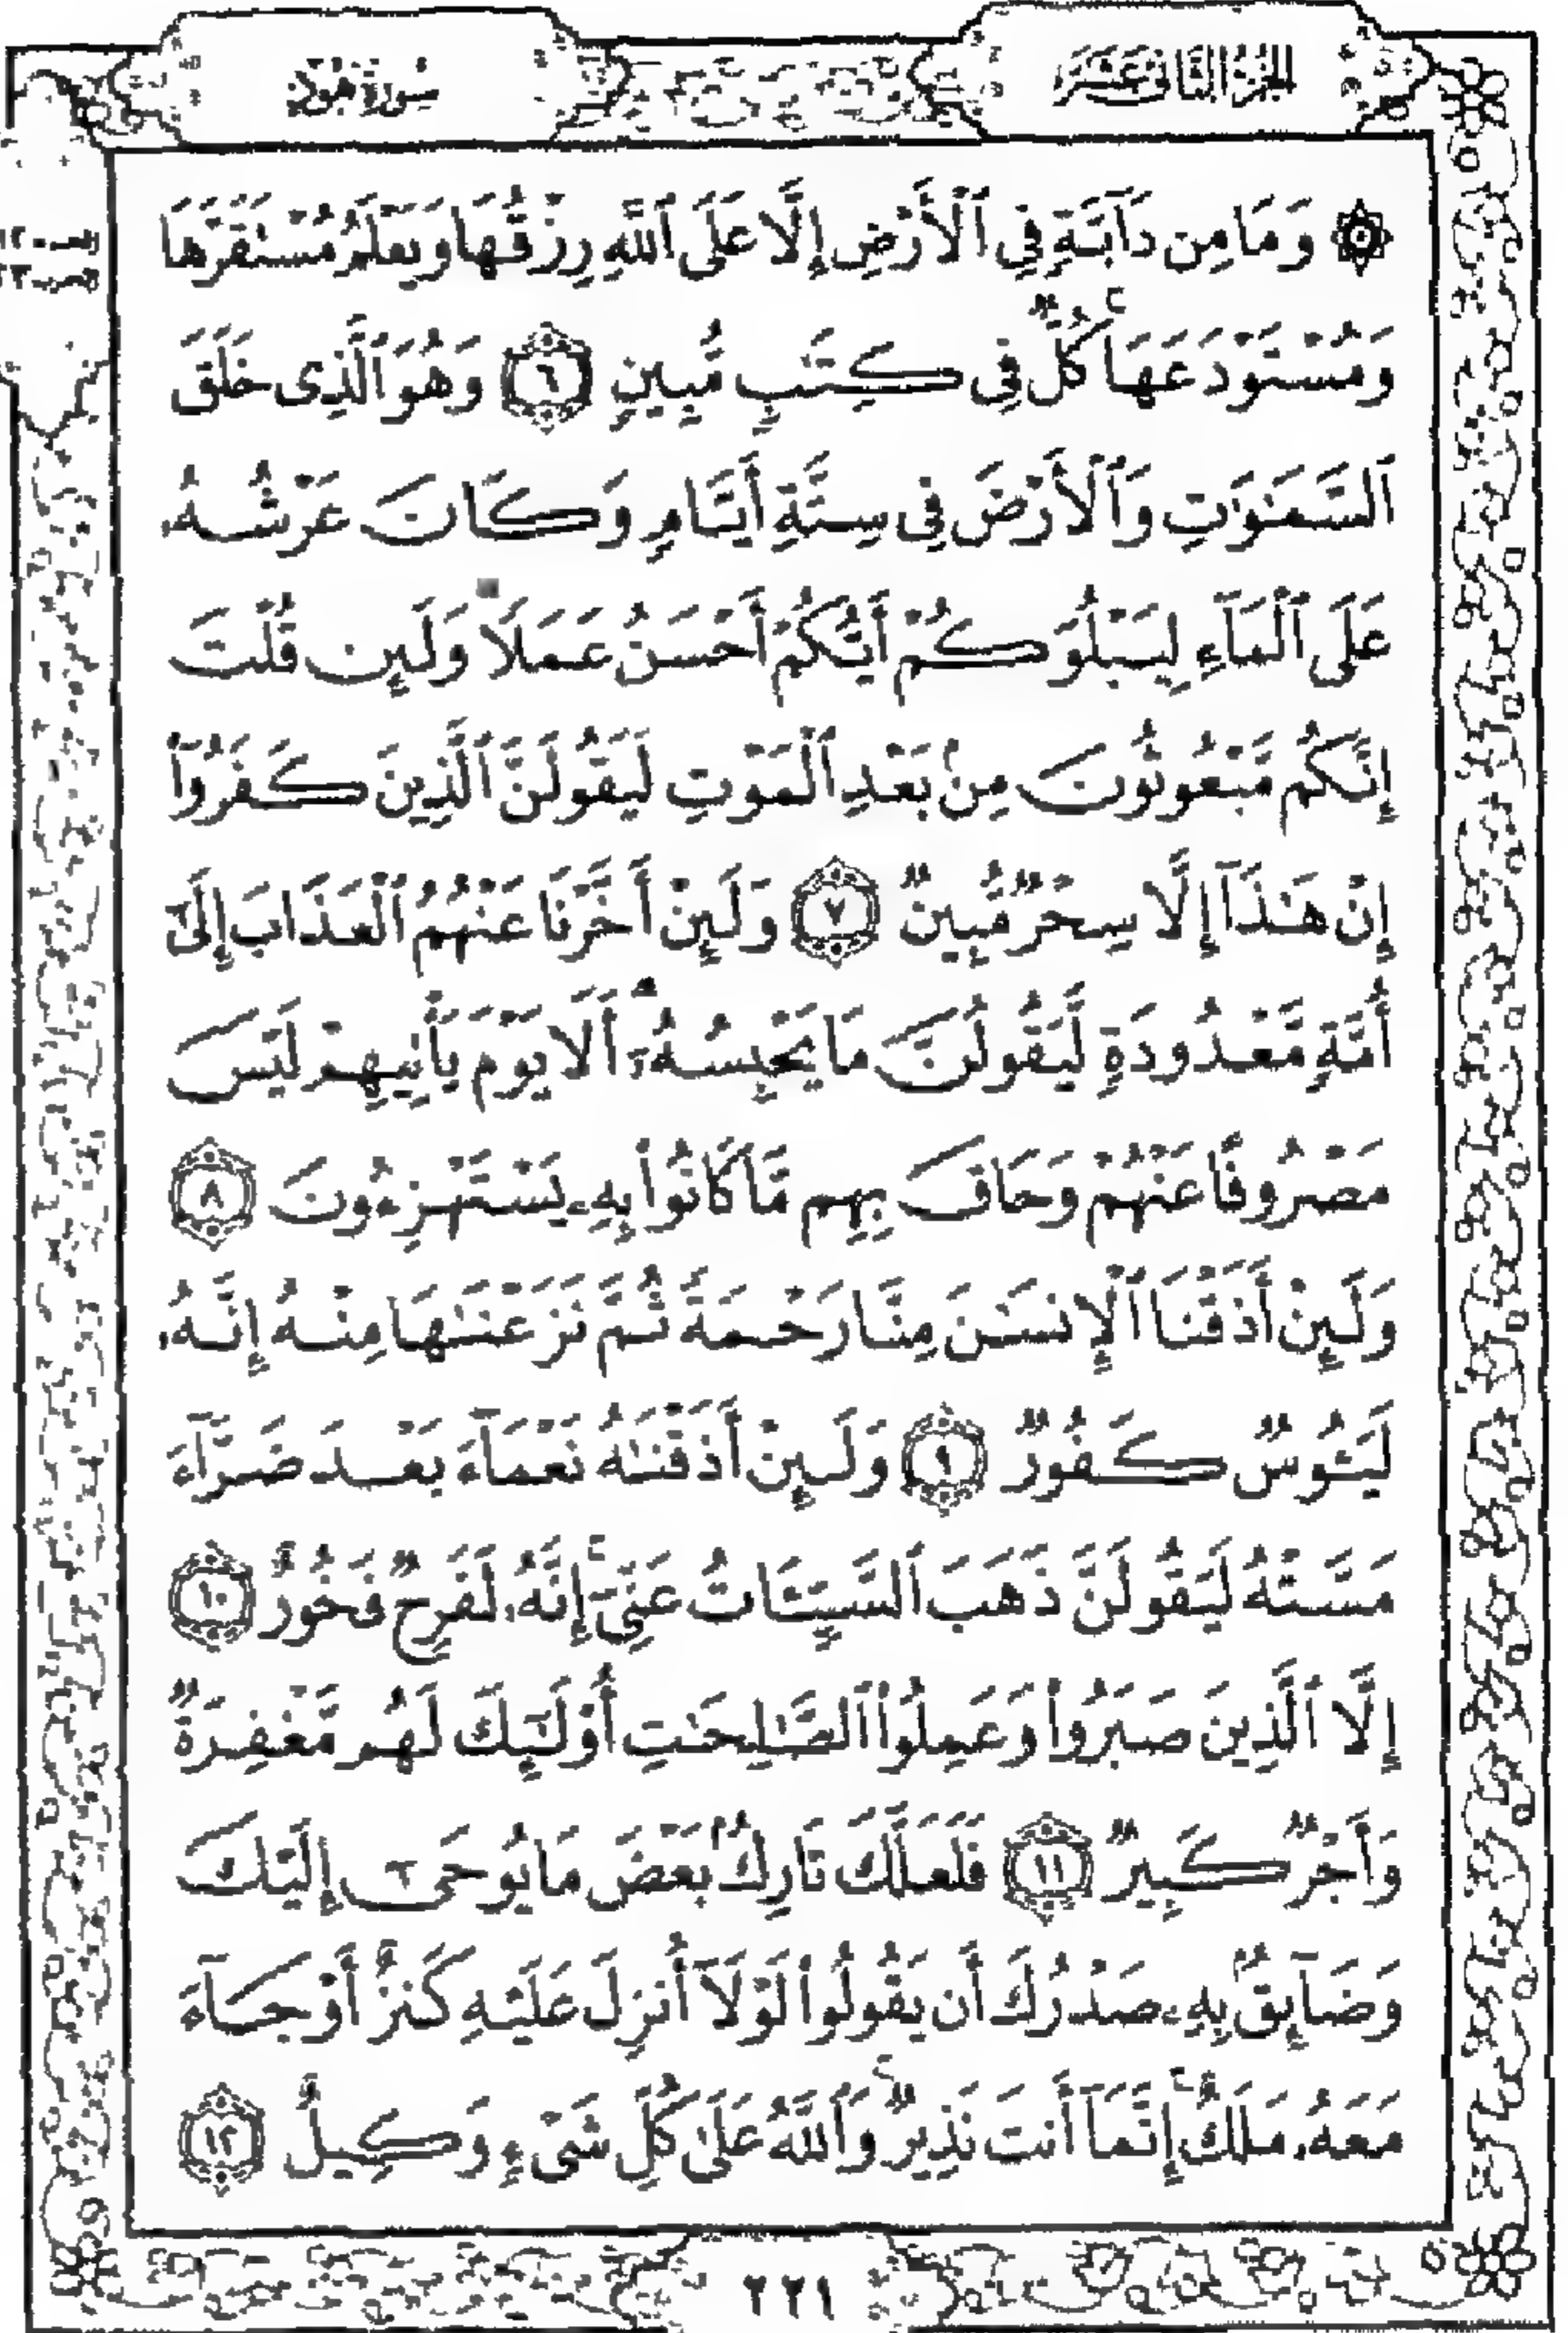 الجزء الثاني عشر
سورة هود
۞ وَمَا مِن دَآبَّةٍ فِي ٱلْأَرْضِ إِلَّا عَلَى ٱللَّهِ رِزْقُهَا وَيَعْلَمُ مُسْتَقَرَّهَا
وَمُسْتَوْدَعَهَا ۚ كُلٌّ فِى كِتَٰبٍ مُّبِينٍ ٦ وَهُوَ ٱلَّذِى خَلَقَ
ٱلسَّمَٰوَٰتِ وَٱلْأَرْضَ فِى سِتَّةِ أَيَّامٍ وَكَانَ عَرْشُهُۥ
عَلَى ٱلْمَآءِ لِيَبْلُوَكُمْ أَيُّكُمْ أَحْسَنُ عَمَلًا ۗ وَلَئِن قُلْتَ
إِنَّكُم مَّبْعُوثُونَ مِنۢ بَعْدِ ٱلْمَوْتِ لَيَقُولَنَّ ٱلَّذِينَ كَفَرُوٓا۟
إِنْ هَٰذَآ إِلَّا سِحْرٌ مُّبِينٌ ٧ وَلَئِنْ أَخَّرْنَا عَنْهُمُ ٱلْعَذَابَ إِلَىٰٓ
أُمَّةٍ مَّعْدُودَةٍ لَّيَقُولُنَّ مَا يَحْبِسُهُۥٓ ۗ أَلَا يَوْمَ يَأْتِيهِمْ لَيْسَ
مَصْرُوفًا عَنْهُمْ وَحَاقَ بِهِم مَّا كَانُوا۟ بِهِۦ يَسْتَهْزِءُونَ ٨
وَلَئِنْ أَذَقْنَا ٱلْإِنسَٰنَ مِنَّا رَحْمَةً ثُمَّ نَزَعْنَٰهَا مِنْهُ إِنَّهُۥ
لَيَـُٔوسٌ كَفُورٌ ٩ وَلَئِنْ أَذَقْنَٰهُ نَعْمَآءَ بَعْدَ ضَرَّآءَ
مَسَّتْهُ لَيَقُولَنَّ ذَهَبَ ٱلسَّيِّـَٔاتُ عَنِّىٓ ۚ إِنَّهُۥ لَفَرِحٌ فَخُورٌ ١٠
إِلَّا ٱلَّذِينَ صَبَرُوا۟ وَعَمِلُوا۟ ٱلصَّٰلِحَٰتِ أُو۟لَٰٓئِكَ لَهُم مَّغْفِرَةٌ
وَأَجْرٌ كَبِيرٌ ١١ فَلَعَلَّكَ تَارِكٌۢ بَعْضَ مَا يُوحَىٰٓ إِلَيْكَ
وَضَآئِقٌۢ بِهِۦ صَدْرُكَ أَن يَقُولُوا۟ لَوْلَآ أُنزِلَ عَلَيْهِ كَنزٌ أَوْ جَآءَ
مَعَهُۥ مَلَكٌ ۚ إِنَّمَآ أَنتَ نَذِيرٌ ۚ وَٱللَّهُ عَلَىٰ كُلِّ شَىْءٍ وَكِيلٌ ١٢
٢٢١